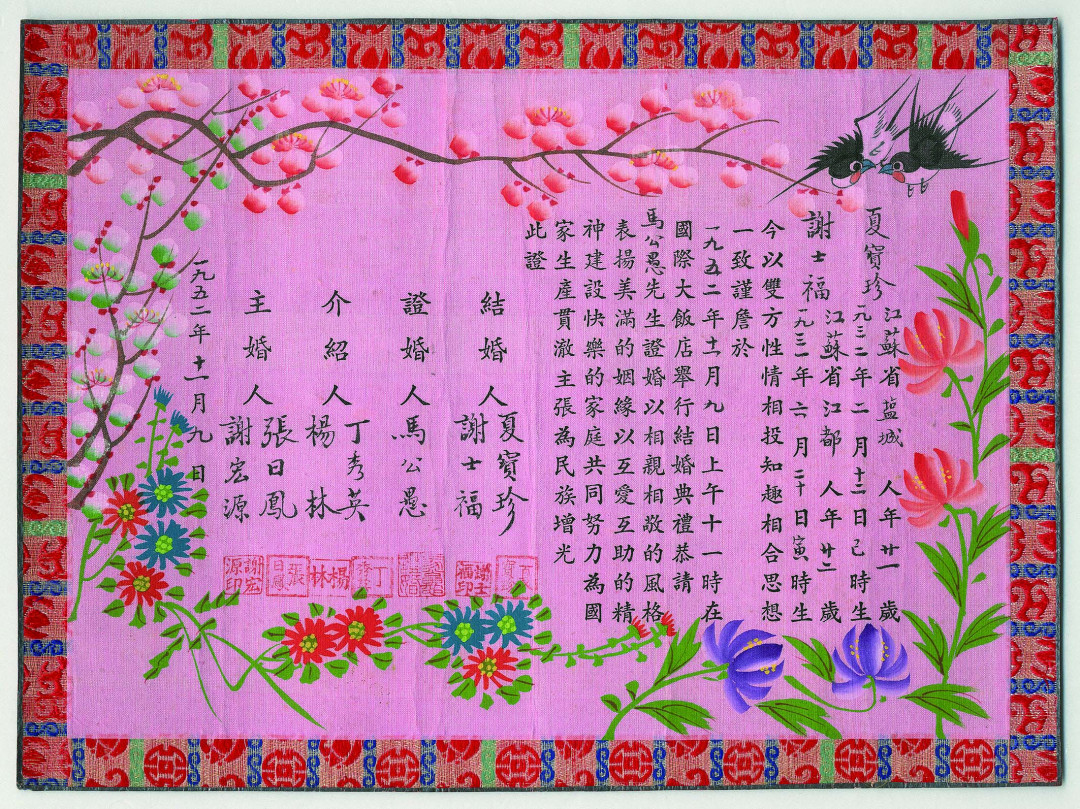 夏寶珍
江蘇省盐城人年廿一歲
一九三二年二月十二日己時生
謝士福
江蘇省江都人年廿二歲
一九三一年六月二十日寅時生
今以雙方性情相投知趣相合思想
一致謹詹於
一九五二年十一月九日上午十一時在
國際大飯店舉行結婚典禮恭請
馬公愚先生證婚以相親相敬的風格
表揚美滿的姻緣以互愛互助的精
神建設快樂的家庭共同努力為國
家生產貫澈主張為民族增光
此證
結婚人
夏寶珍
謝士福
證婚人
馬公愚
介紹人
丁秀英
楊林
主婚人
張日鳳
謝宏源
一九五二年十一月九日
謝士福印
楊林
張日鳳
謝宏源印